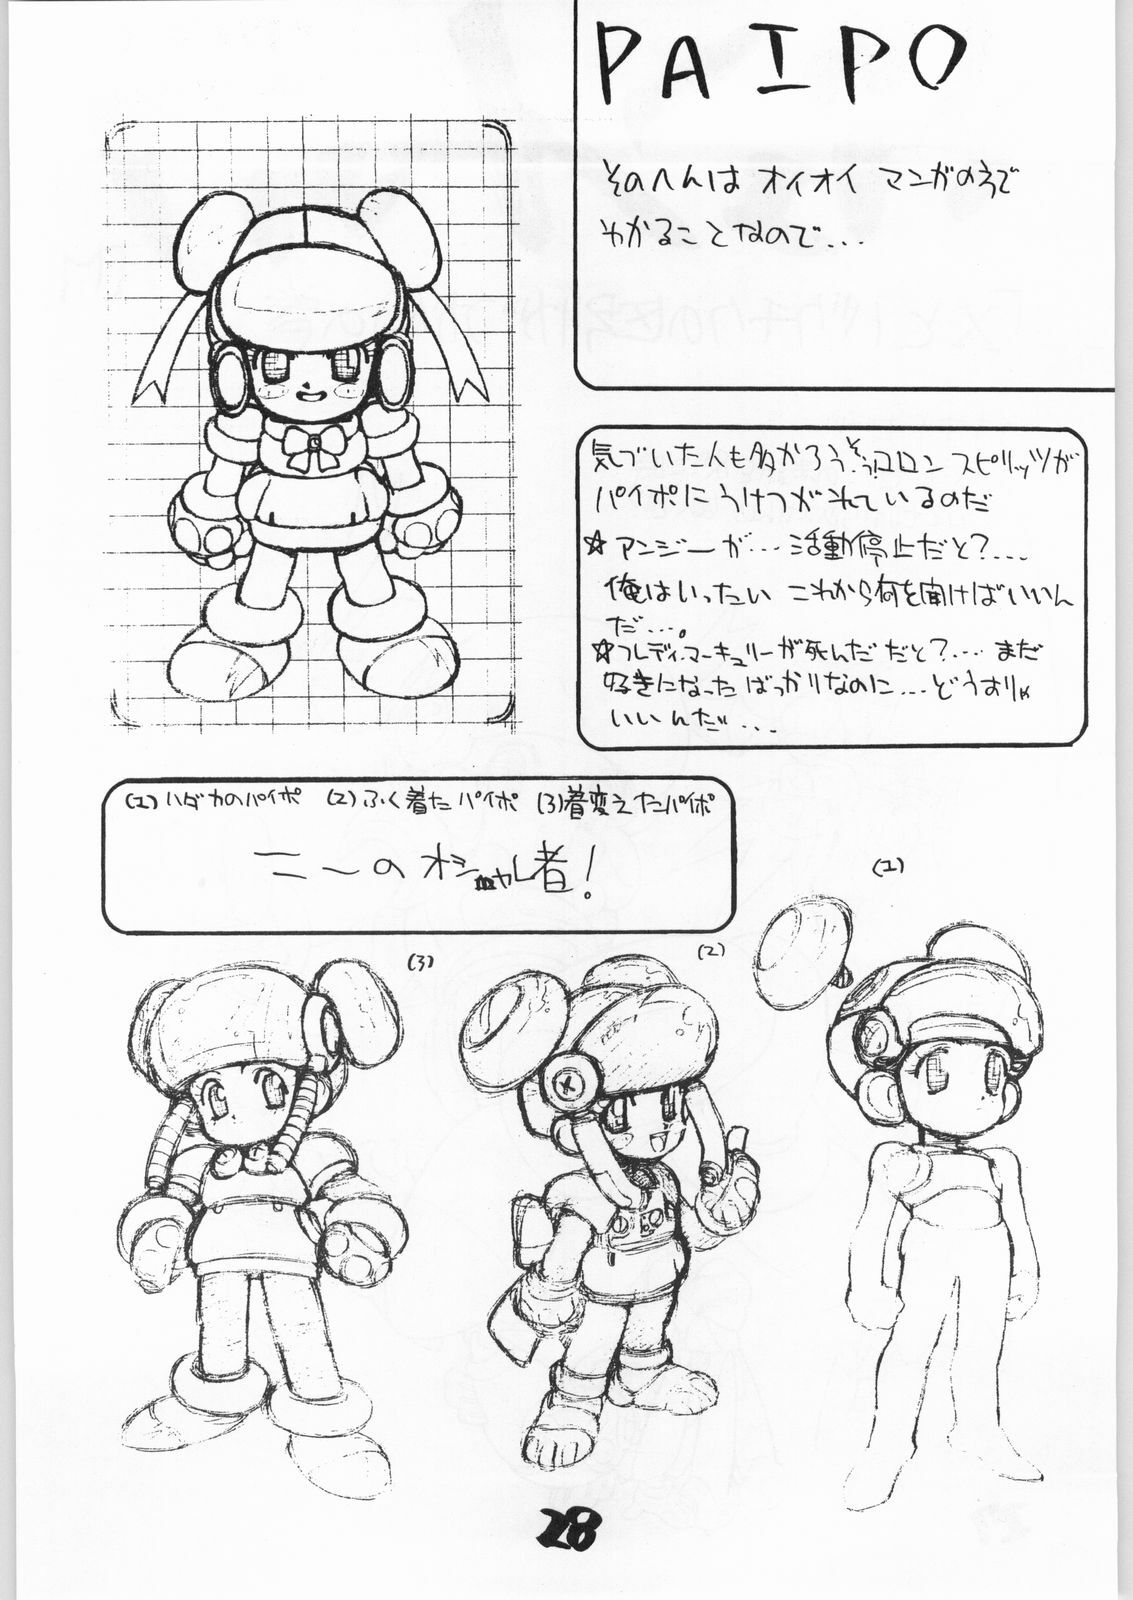 PAIPO
そのへんは オイオイ マンガの方で
わかることなので...
気づいた人も多かろう、そう!コロン スピリッツが
パイポにうけつがれているのだ
☆アンジーが…活動停止だと?....
俺はいったい これから何を聞けばいいん
だ....。
☆フレディ・マーキュリーが死んだ だと?.... まだ
好きになったばっかりなのに...どうすりゃ
いいんだ...
(1)ハダカのパイポ (2)ふく着たパイポ (3)着変えたパイポ
ニーの オシャレ者!
(1)
(3)
(2)
28